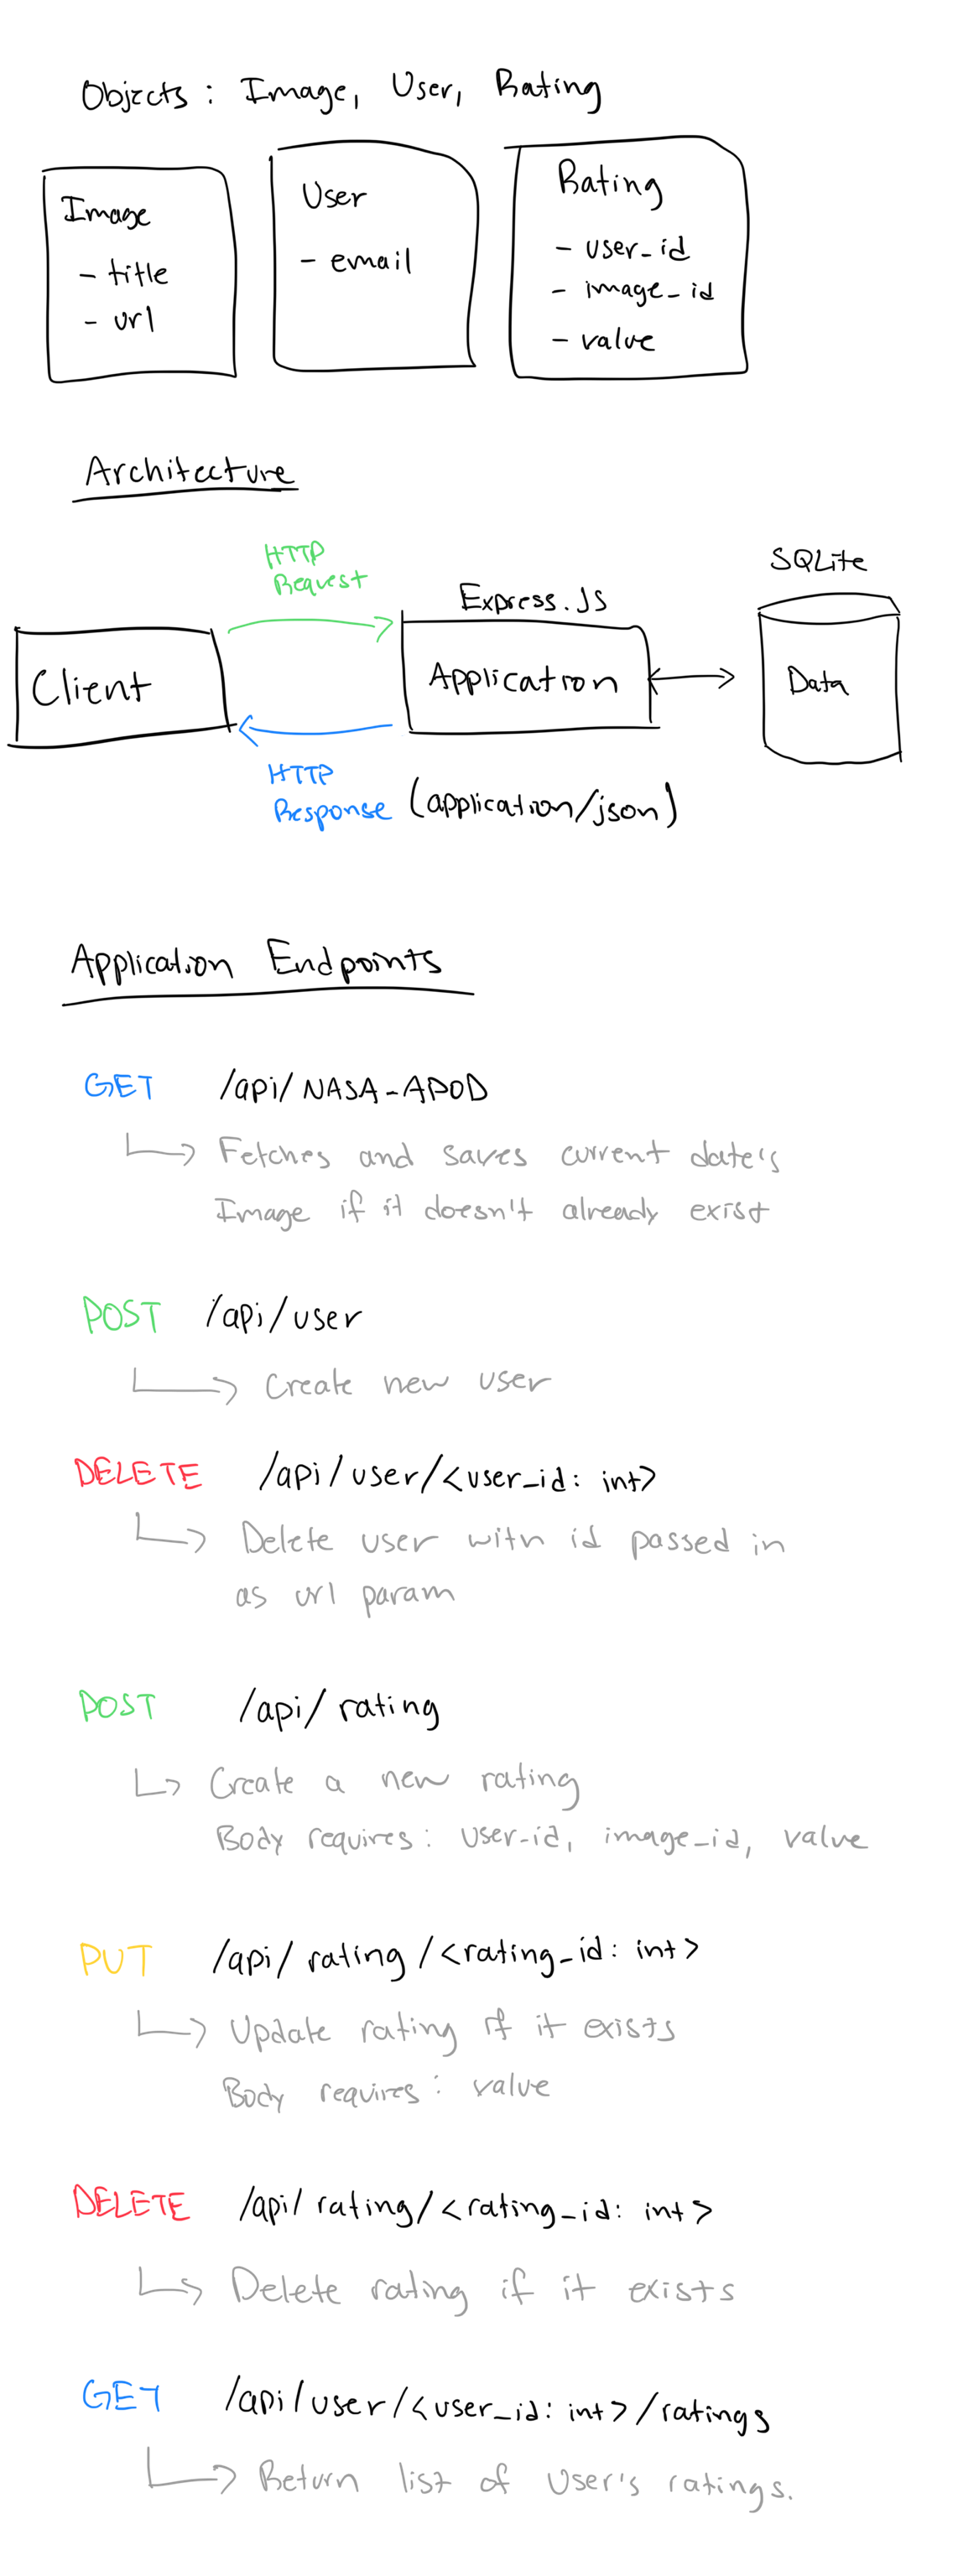 Objects : Image, User, Rating
Image
- title
- url
User
- email
Rating
- user_id
- image_id
- value
Architecture
HTTP
Request
Client
Express.JS
Application
SQLite
Data
HTTP
Response (application/json)
Application Endpoints
GET /api/NASA-APOD
Fetches and saves current date's
Image if it doesn't already exist
POST /api/user
Create new user
DELETE /api/user/<user_id: int>
Delete user with id passed in
as url param
POST /api/rating
Create a new rating
Body requires: user_id, image_id, value
PUT /api/rating/<rating_id: int>
Update rating if it exists
Body requires: value
DELETE /api/rating/<rating_id: int>
Delete rating if it exists
GET /api/user/<user_id: int>/ratings
Return list of user's ratings.